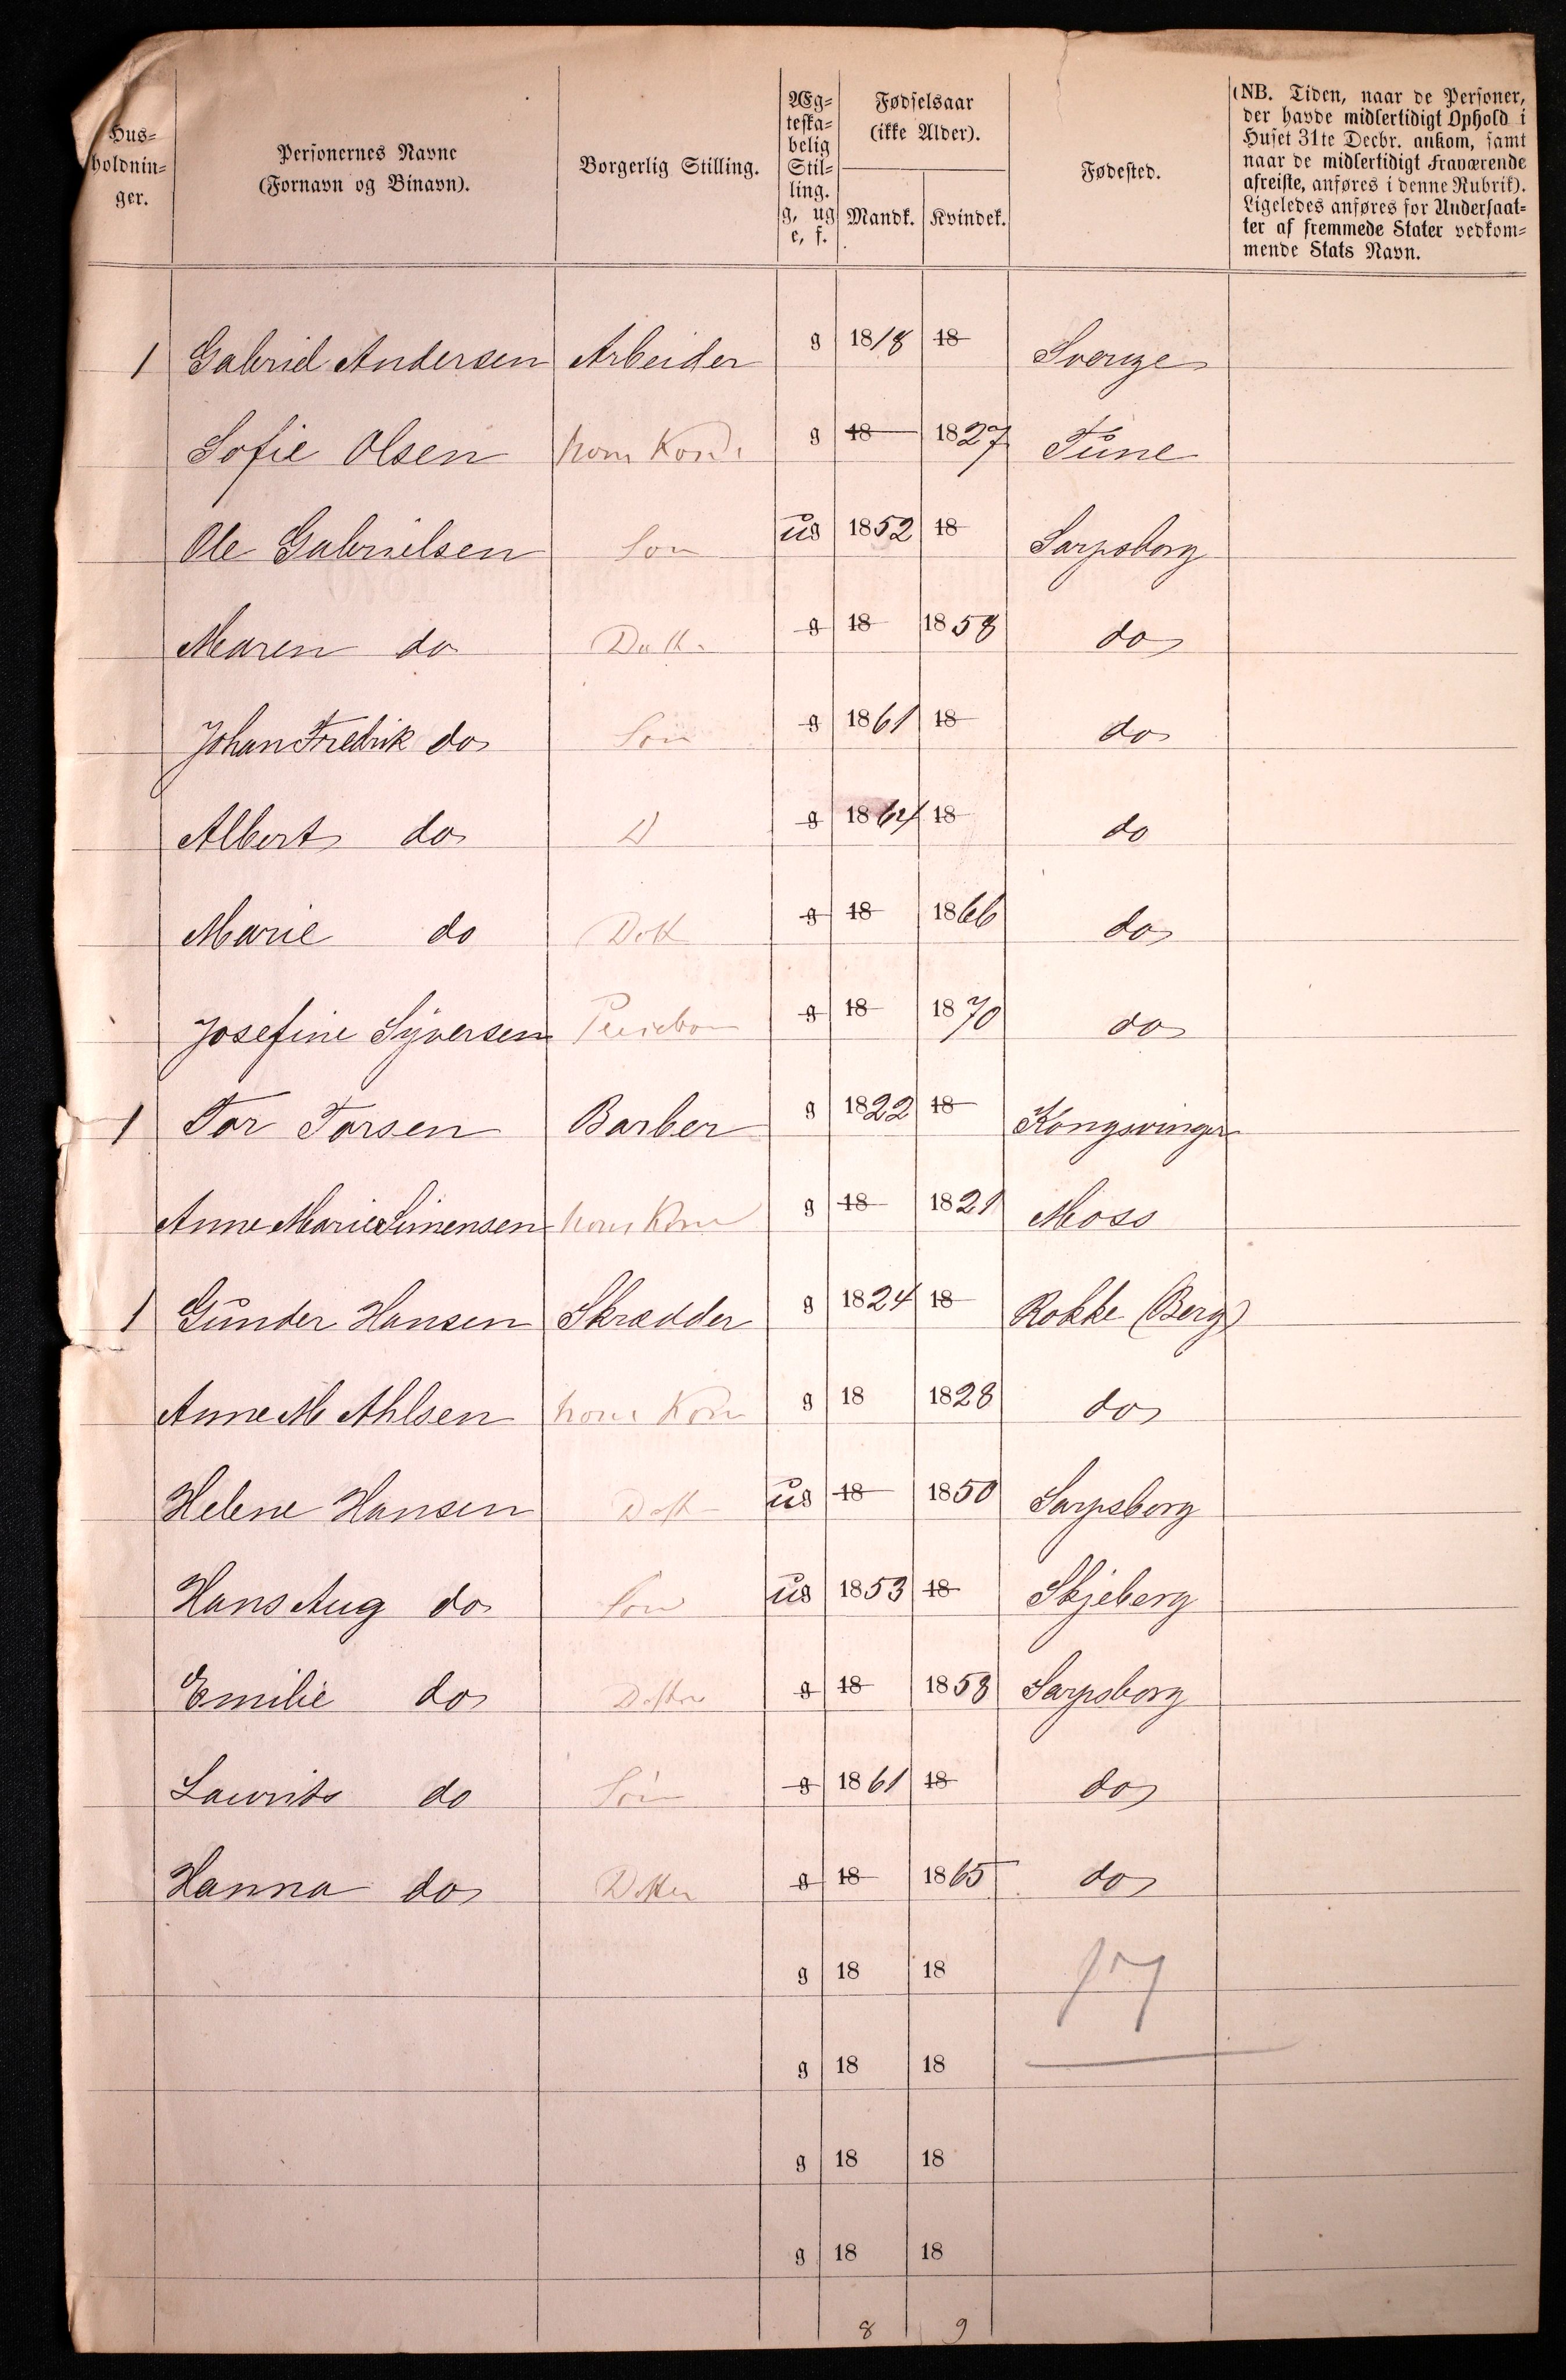 Hus-
holdnin-
ger.
Personernes Navne
(Fornavn og Binavn).
Borgerlig Stilling.
Æg-
teska-
belig
Stil-
ling.
g, ug
e, f.
Fødselsaar
(ikke Alder).
Mandk. Kvindek.
Fødested.
(NB. Tiden, naar de Personer,
der havde midlertidigt Ophold i
Huset 31te Decbr. ankom, samt
naar de midlertidigt Fraværende
afreiste, anføres i denne Rubrik).
Ligeledes anføres for Undersaat-
ter af fremmede Stater vedkom-
mende Stats Navn.
1 Gabriel Andersen Arbeider g 1818 18 Sverige
Sofie Olsen hans Kone g 18 1827 Tune
Ole Gabrielsen Søn ug 1852 18 Sarpsborg
Maren do Datt. g 18 1858 do
Johan Fredrik do Søn g 1861 18 do
Albert do D g 1864 18 do
Marie do Datt g 18 1866 do
Josefine Syversen g 18 1870 do
1 Tor Torsen Barber g 1822 18 Kongsvinger
Anne Marie Simensen hans Kone g 18 1821 Moss
1 Gunder Hansen Skrædder g 1824 18 Rokke (Berg)
Anne M Ahlsen hans Kone g 18 1828 do
Helene Hansen Datt ug 18 1850 Sarpsborg
Hans Aug do Søn ug 1853 18 Skjeberg
Emilie do Datter g 18 1858 Sarpsborg
Laurits do Søn g 1861 18 do
Hanna do Datter g 18 1865 do
g 18 18 17
g 18 18
g 18 18
g 18 18
8 9